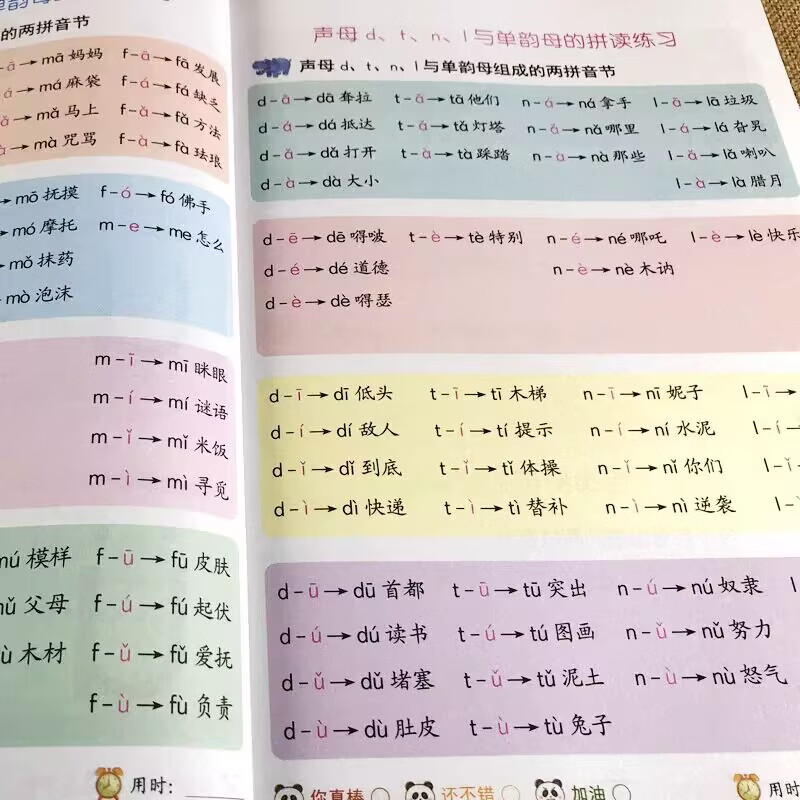 单韵母
的两拼音节
-ā→mā 妈妈 f-ā→fā 发展
á→má 麻袋 f-á→fá 缺乏
ǎ→mǎ 马上 f-ǎ→fǎ 方法
à→mà 咒骂 f-à→fà 珐琅
→mō 抚摸 f-ó→fó 佛手
→mó 摩托 m-e→me 怎么
→mǒ 抹药
mò 泡沫
m-ī→mī 眯眼
m-í→mí 谜语
m-ǐ→mǐ 米饭
m-ì→mì 寻觅
mú 模样 f-ū→fū 皮肤
mǔ 父母 f-ú→fú 起伏
ù 木材 f-ǔ→fǔ 爱抚
f-ù→fù 负责
用时：
声母 d、t、n、l 与单韵母的拼读练习
声母 d、t、n、l 与单韵母组成的两拼音节
d-ā→dā 耷拉 t-ā→tā 他们 n-á→ná 拿手 l-ā→lā 垃圾
d-á→dá 抵达 t-ǎ→tǎ 灯塔 n-ǎ→nǎ 哪里 l-á→lá 旮旯
d-ǎ→dǎ 打开 t-à→tà 踩踏 n-à→nà 那些 l-ǎ→lǎ 喇叭
d-à→dà 大小 l-à→là 腊月
d-ē→dē 嘚啵 t-è→tè 特别 n-é→né 哪吒 l-è→lè 快乐
d-é→dé 道德 n-è→nè 木讷
d-è→dè 嘚瑟
d-ī→dī 低头 t-ī→tī 木梯 n-ī→nī 妮子 l-ī→
d-í→dí 敌人 t-í→tí 提示 n-í→ní 水泥 l-í→
d-ǐ→dǐ 到底 t-ǐ→tǐ 体操 n-ǐ→nǐ 你们 l-ǐ
d-ì→dì 快递 t-ì→tì 替补 n-ì→nì 逆袭 l-
d-ū→dū 首都 t-ū→tū 突出 n-ú→nú 奴隶 l
d-ú→dú 读书 t-ú→tú 图画 n-ǔ→nǔ 努力
d-ǔ→dǔ 堵塞 t-ǔ→tǔ 泥土 n-ù→nù 怒气
d-ù→dù 肚皮 t-ù→tù 兔子
你真棒 还不错 加油 用时